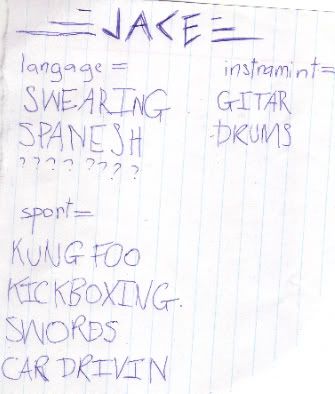 JACE
langage =
SWEARING
SPANESH
???? ????
instramint=
GITAR
DRUMS
sport=
KUNG FOO
KICKBOXING.
SWORDS
CAR DRIVIN